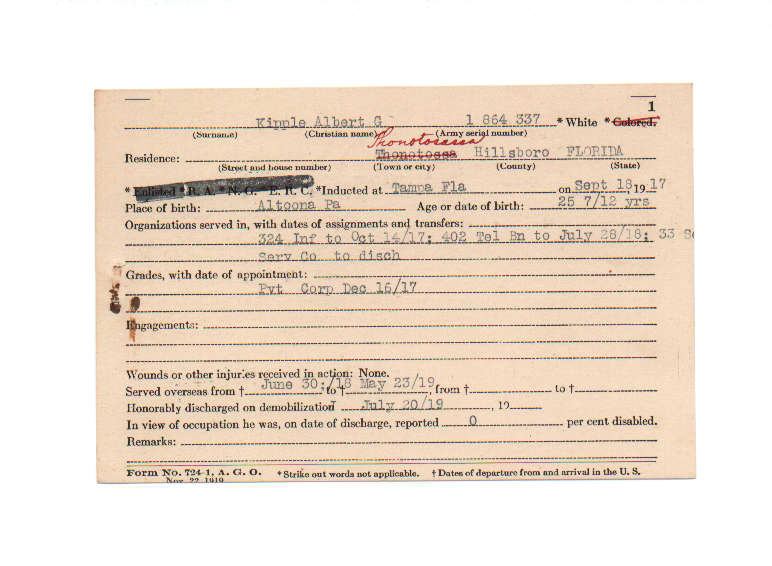 1
Kipple Albert G 1 864 337 * White * Colored.
(Surname) (Christian name) (Army serial number)
Thonotosassa
Residence: Thonotossa Hillsboro FLORIDA
(Street and house number) (Town or city) (County) (State)
* Enlisted * R. A. * N. G. * E. R. C. *Inducted at Tampa Fla on Sept 18, 1917
Place of birth: Altoona Pa Age or date of birth: 25 7/12 yrs
Organizations served in, with dates of assignments and transfers:
324 Inf to Oct 14/17; 402 Tel Bn to July 28/18; 33
Serv Co to disch
Grades, with date of appointment:
Pvt Corp Dec 16/17
Engagements:
Wounds or other injuries received in action: None.
Served overseas from † June 30:/18 to † May 23/19, from † to †
Honorably discharged on demobilization July 20/19, 19
In view of occupation he was, on date of discharge, reported 0 per cent disabled.
Remarks:
Form No. 724-1, A. G. O. * Strike out words not applicable. † Dates of departure from and arrival in the U. S.
Nov. 22 1919